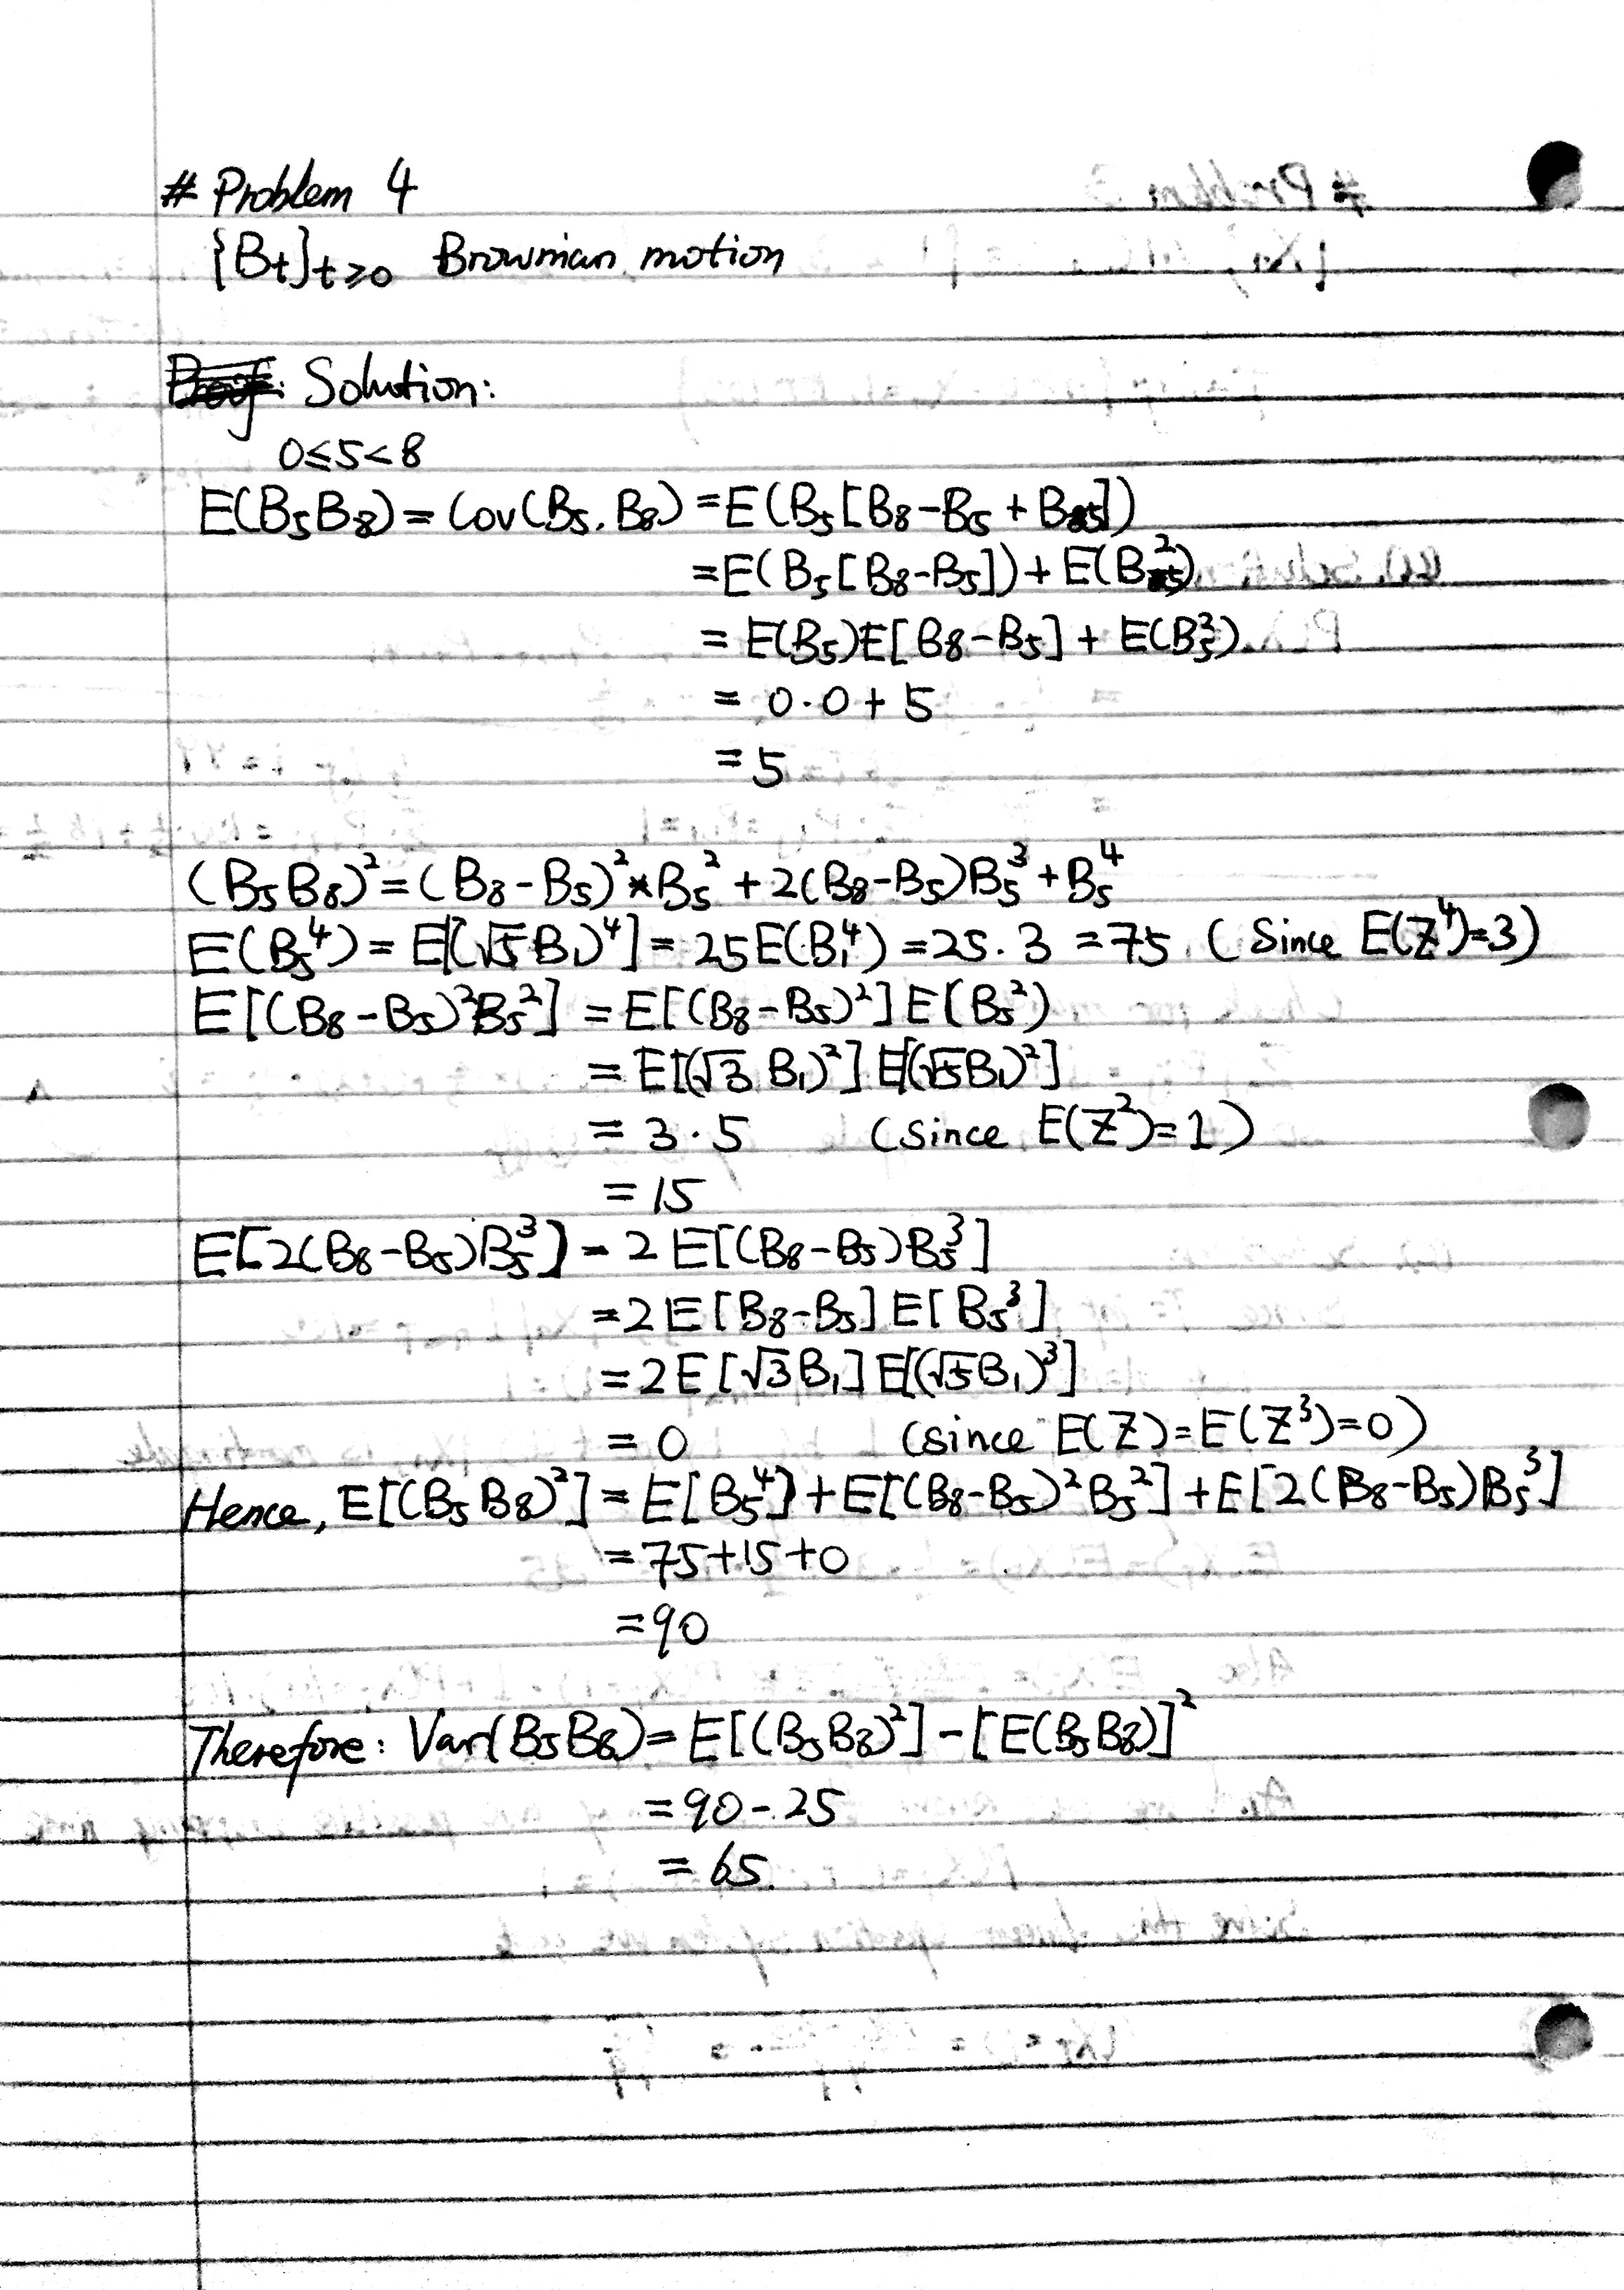 # Problem 4
{Bt}t≥0 Brownian motion
Solution:
0≤5<8
E(B₅B₈) = Cov(B₅, B₈) = E(B₅[B₈-B₅ + B₅])
= E(B₅[B₈-B₅]) + E(B₅²)
= E(B₅)E[B₈-B₅] + E(B₅²)
= 0·0 + 5
= 5
(B₅B₈)² = (B₈-B₅)² * B₅² + 2(B₈-B₅)B₅³ + B₅⁴
E(B₅⁴) = E[(√5 B₁)⁴] = 25E(B₁⁴) = 25·3 = 75 (Since E(Z⁴)=3)
E[(B₈-B₅)²B₅²] = E[(B₈-B₅)²] E(B₅²)
= E[(√3 B₁)²] E[(√5B₁)²]
= 3·5 (since E(Z²)=1)
= 15
E[2(B₈-B₅)B₅³] = 2 E[(B₈-B₅)B₅³]
= 2 E[B₈-B₅] E[B₅³]
= 2E[√3B₁] E[(√5B₁)³]
= 0 (since E(Z)=E(Z³)=0)
Hence, E[(B₅B₈)²] = E[B₅⁴] + E[(B₈-B₅)²B₅²] + E[2(B₈-B₅)B₅³]
= 75+15+0
= 90
Therefore: Var(B₅B₈) = E[(B₅B₈)²] - [E(B₅B₈)]²
= 90-25
= 65.